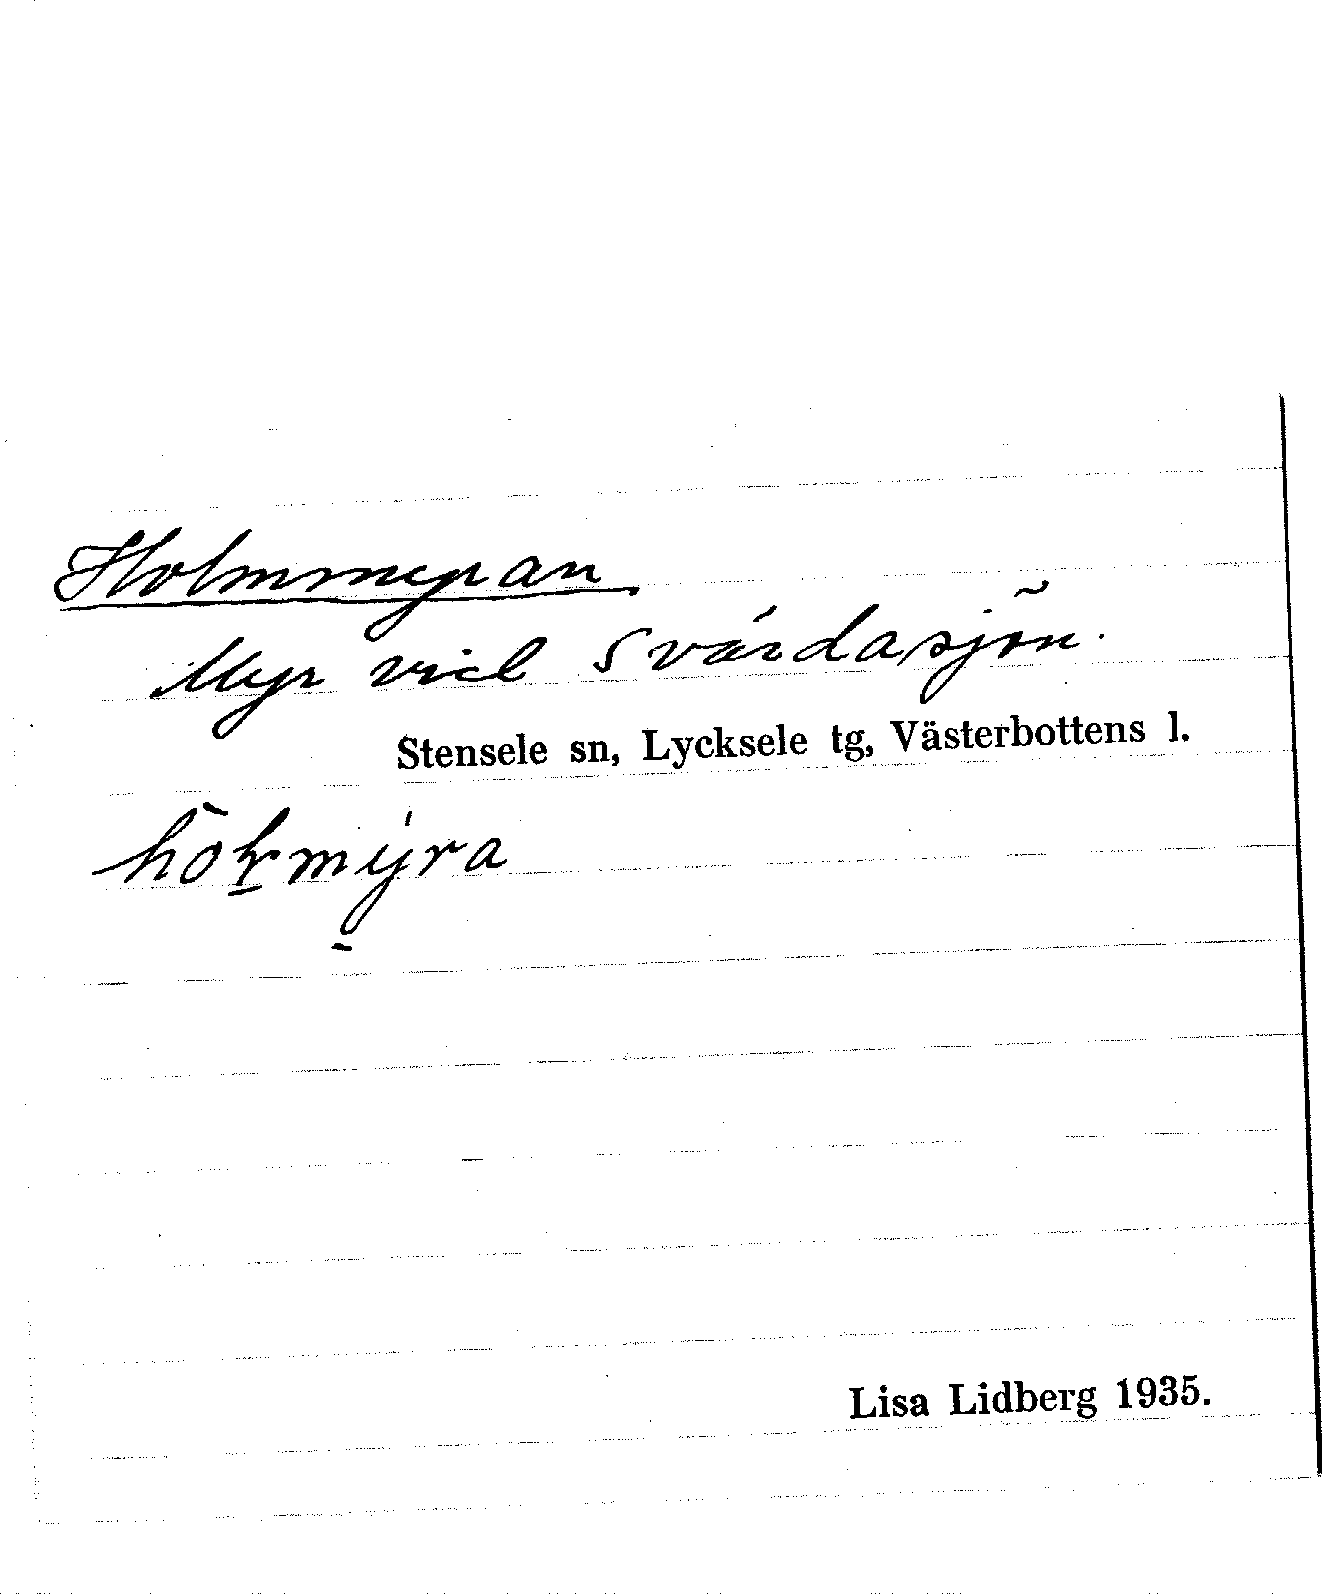 Holmmyran
Myr vid Svärdasjön.
Stensele sn, Lycksele tg, Västerbottens l.
Lisa Lidberg 1935.